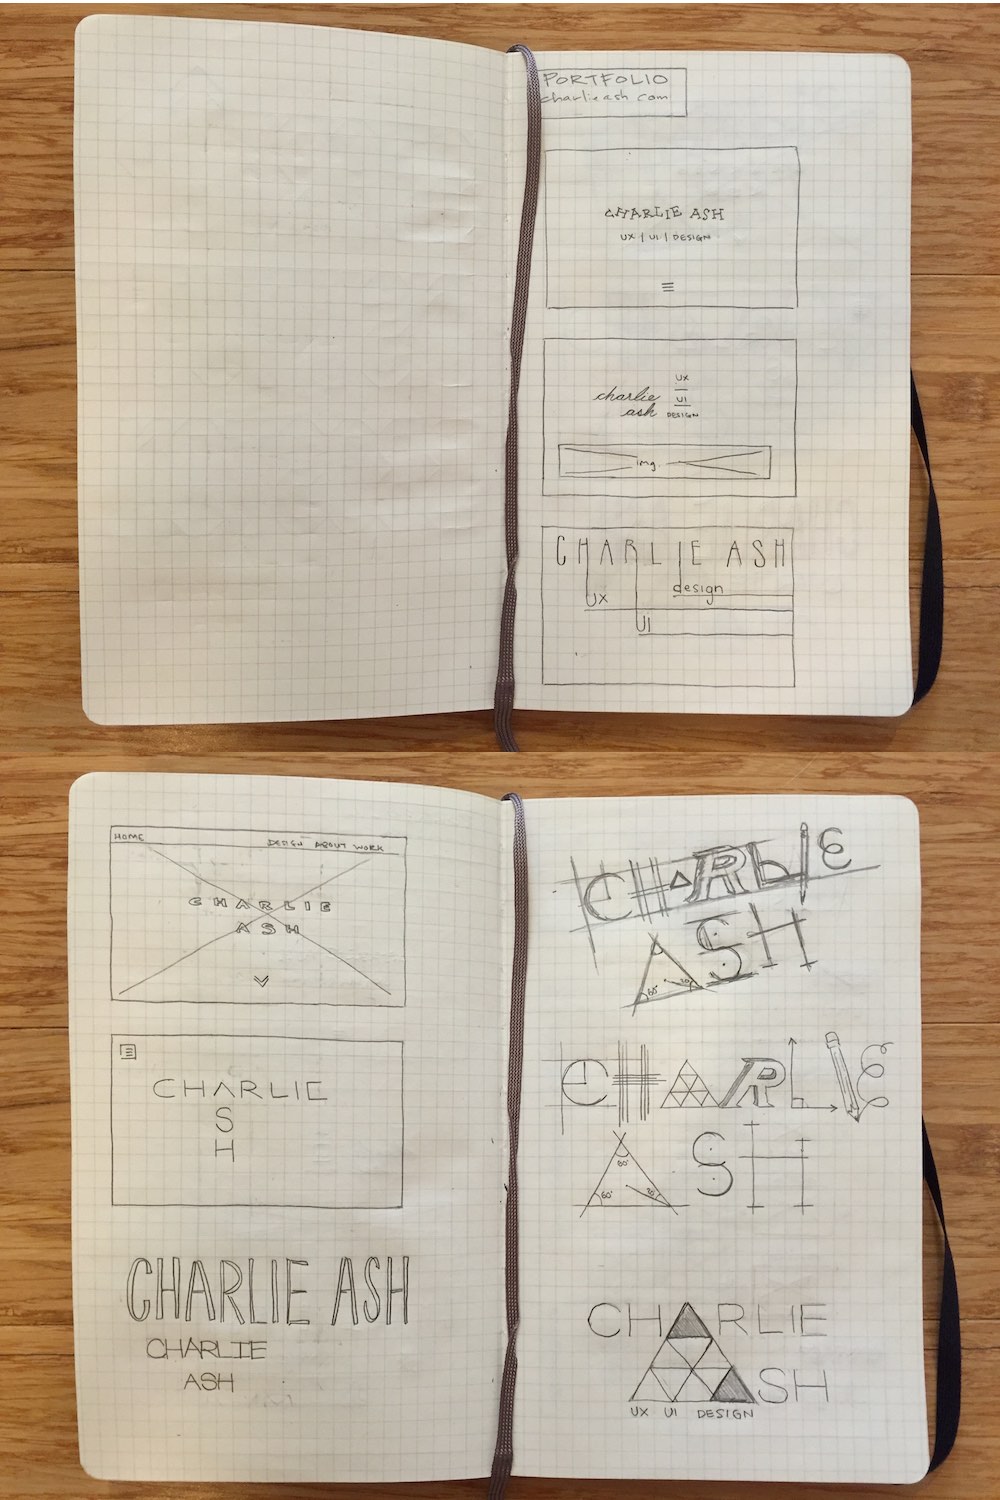 PORTFOLIO
charlieash.com
CHARLIE ASH
UX | UI | DESIGN
charlie
ash
UX
UI
DESIGN
img.
CHARLIE ASH
design
UX
UI
HOME
DESIGN ABOUT WORK
CHARLIE
ASH
CHARLIE
S
H
CHARLIE ASH
CHARLIE
ASH
CHARLIE
ASH
60°
CHARLIE
ASH
60°
60°
CHARLIE
ASH
UX UI DESIGN